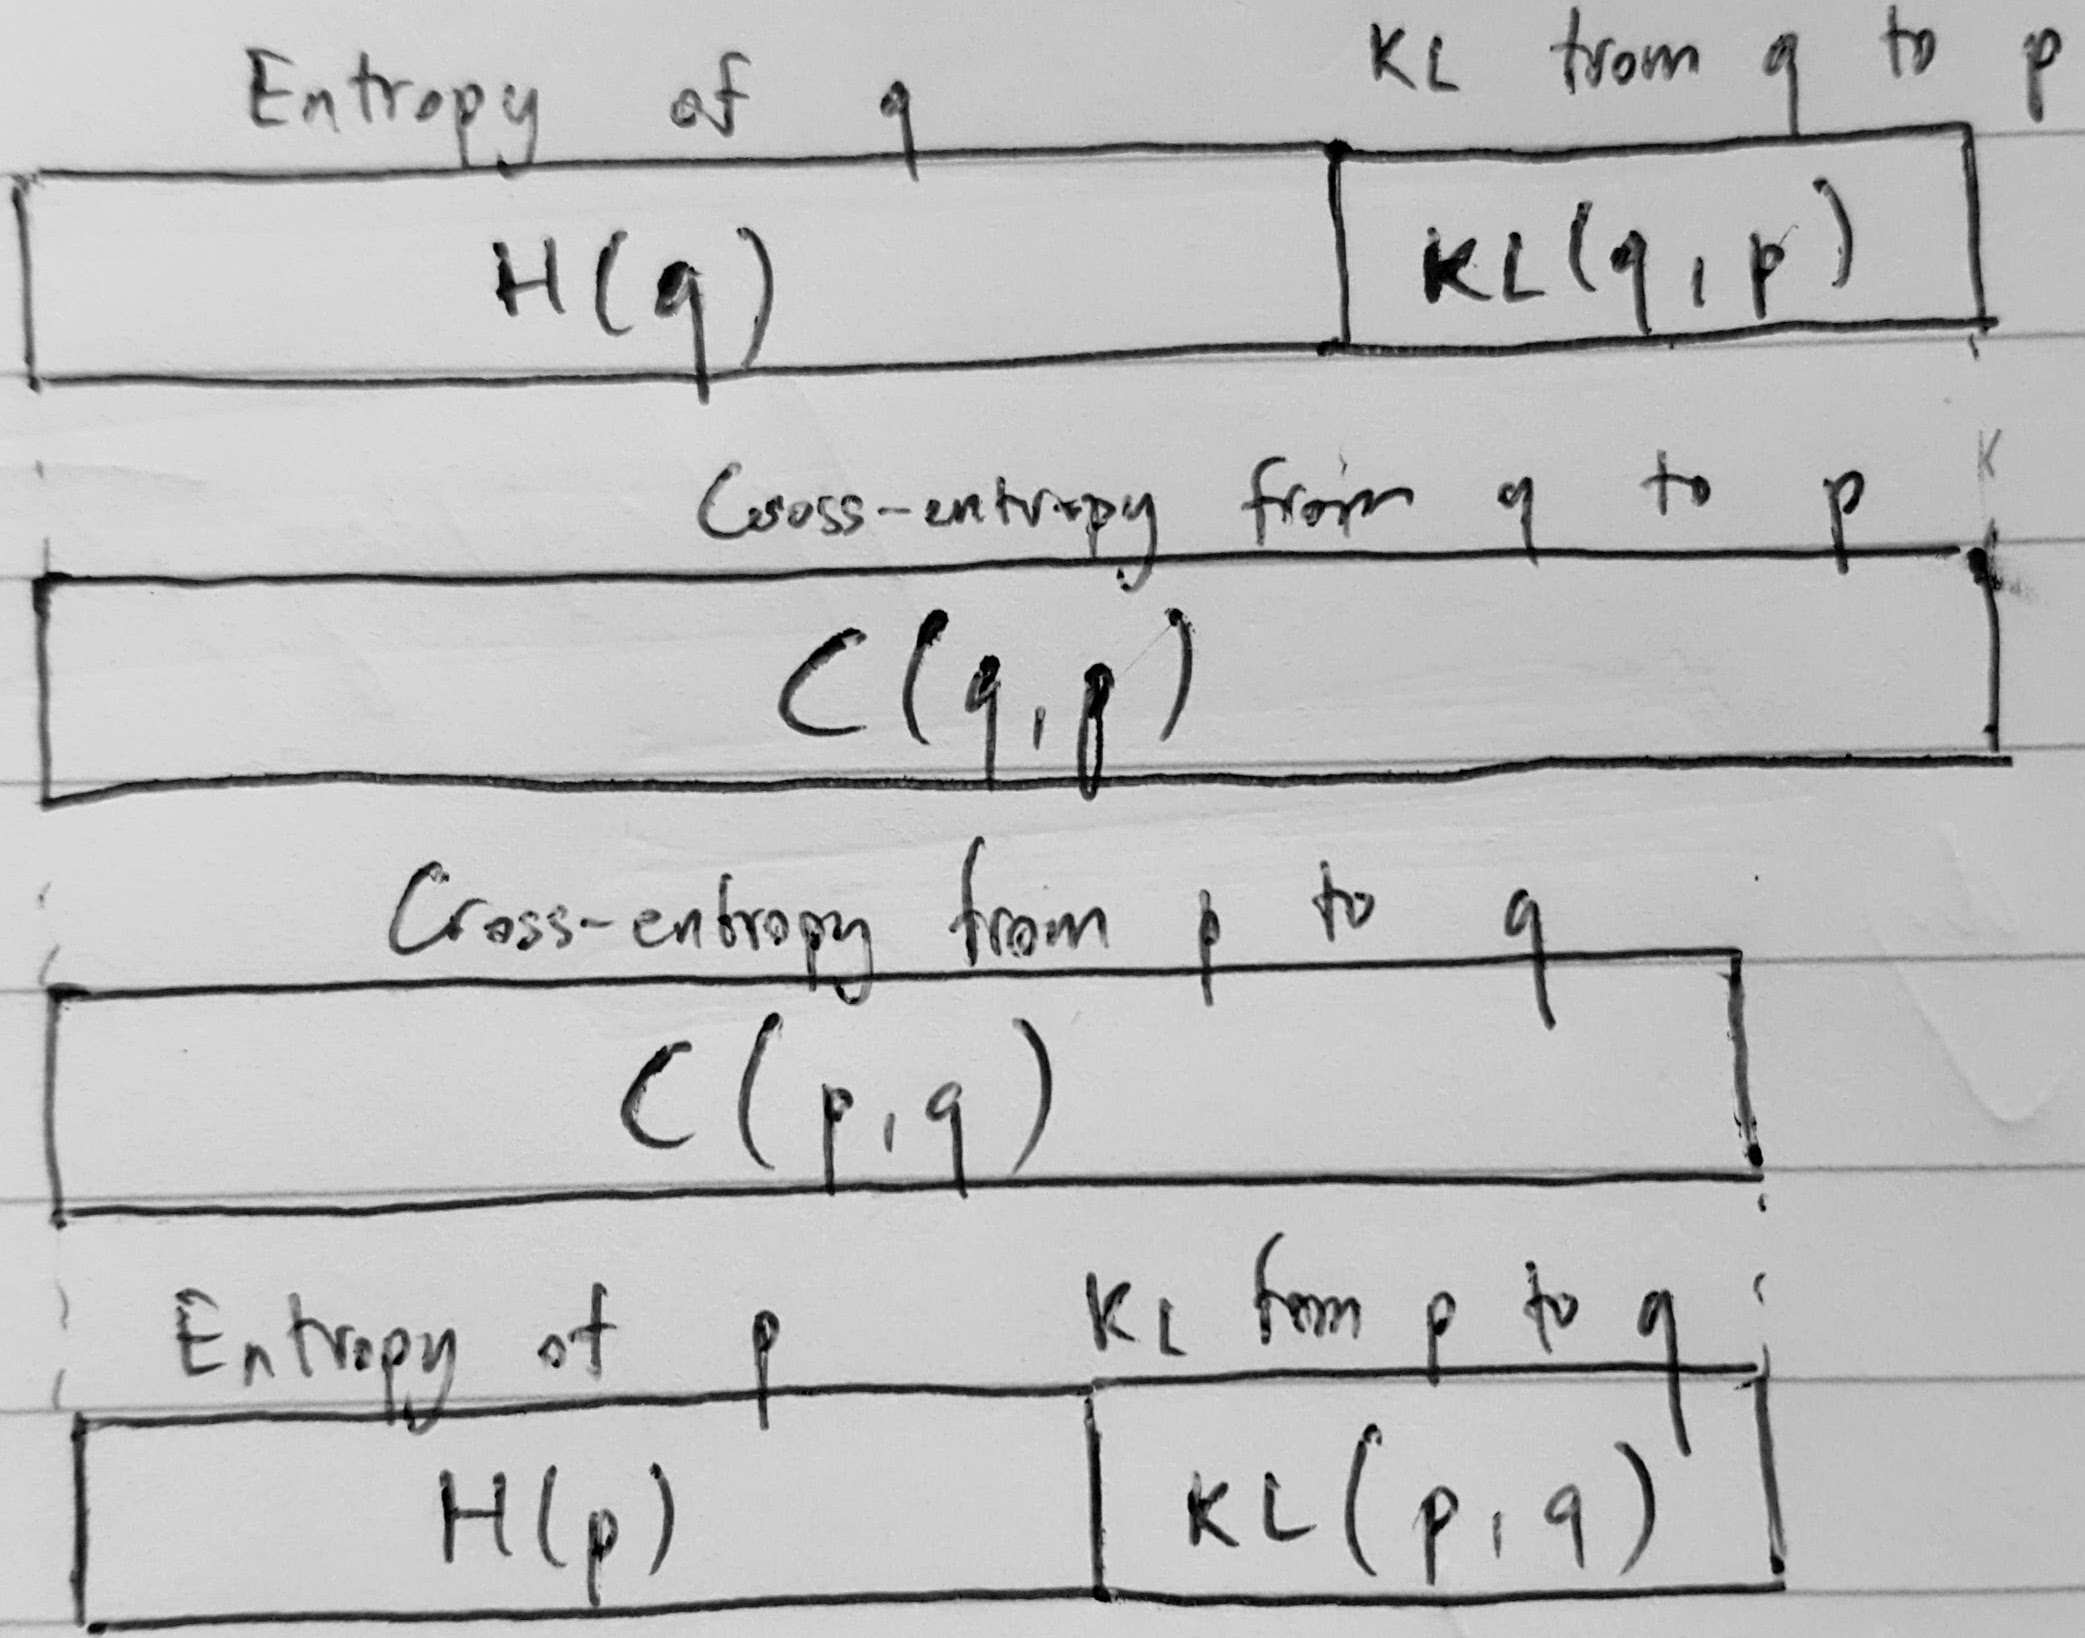 Entropy of q KL from q to p
H(q) KL(q,p)
Cross-entropy from q to p
C(q,p)
Cross-entropy from p to q
C(p,q)
Entropy of p KL from p to q
H(p) KL(p,q)